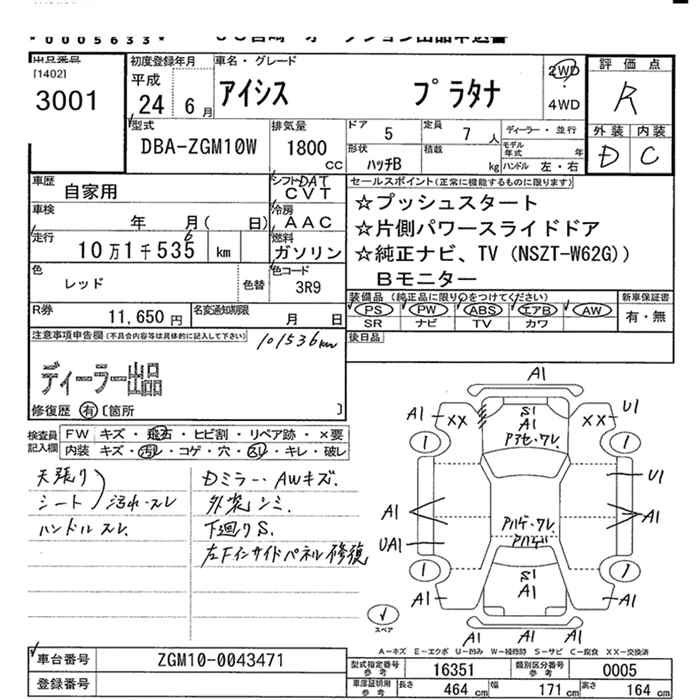 *0005633*
出品番号
[1402]
3001
初度登録年月
平成
24年 6月
車名・グレード
アイシス プラタナ
2WD
4WD
評価点
R
外装 内装
D C
型式
DBA-ZGM10W
排気量
1800
CC
ドア
5
定員
7人
形状
ハッチB
積載
kg
ディーラー・並行
モデル年式 年
ハンドル 左・右
車歴
自家用
シフト DAT
CVT
車検
年 月( 日)
冷房
AAC
走行
10万1千535 km
6
燃料
ガソリン
色
レッド
色替
色コード
3R9
R券
11,650円
名変通知期限
月 日
セールスポイント(正常に機能するものに限ります)
☆プッシュスタート
☆片側パワースライドドア
☆純正ナビ、TV(NSZT-W62G))
Bモニター
装備品(純正品に限り○をつけてください)
PS PW ABS エアB AW
SR ナビ TV カワ
新車保証書
有・無
後日品
注意事項申告欄(不具合内容等は具体的に記入して下さい)
101536km
ディーラー出品
修復歴 有 〔箇所 〕
検査員記入欄
FW キズ・飛石・ヒビ割・リペア跡・×要
内装 キズ・汚れ・コゲ・穴・スレ・キレ・破レ
天張り
シート
汚れ・スレ
ハンドルスレ
Dミラー・AWキズ.
外装シミ.
下廻りS.
左Fインサイドパネル修復
A1
A1 XX S1 A1 XX U1
1 1
U1
A1 A1
UA1
1 1
S1
A1 A1 A1
A1 A1
スペア
A-キズ E-エクボ U-凹み W-補修跡 S-サビ C-腐食 XX-交換済
車台番号
ZGM10-0043471
登録番号
型式指定番号 参考
16351
類別区分番号 参考
0005
車庫証明用 参考
長さ 464 cm
幅 171 cm
高さ 164 cm